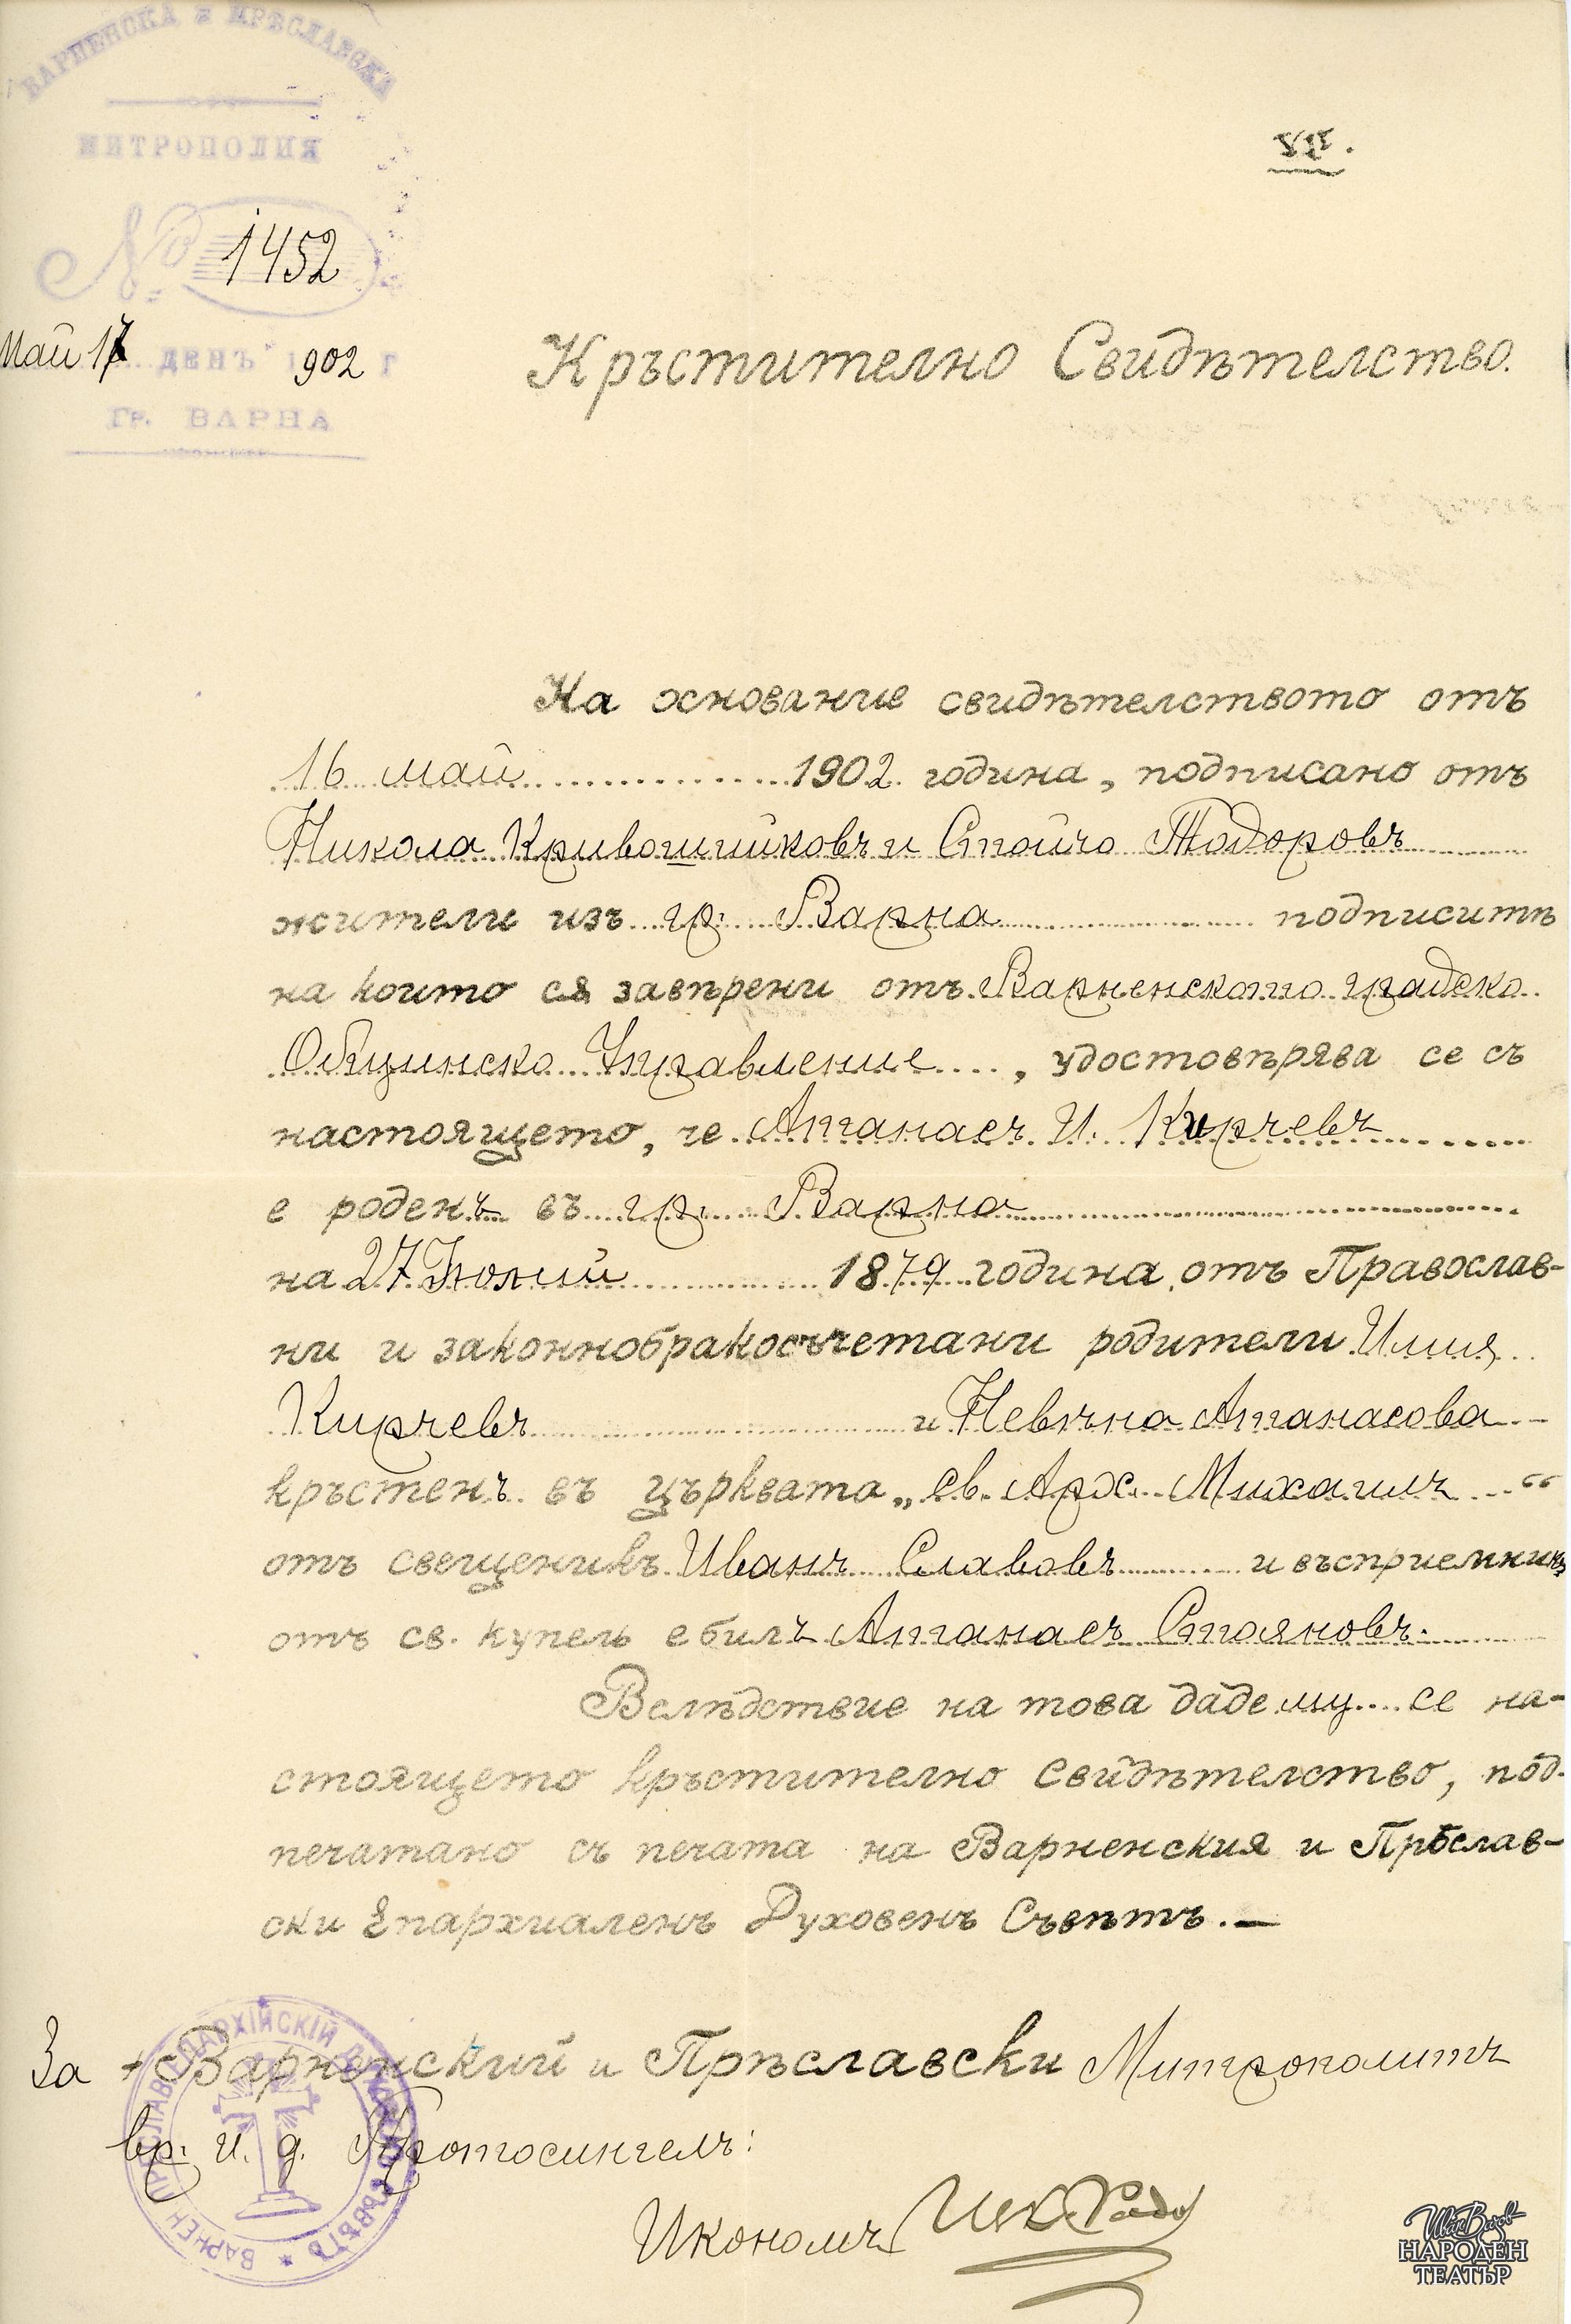 ВАРНЕНСКА и ПРѢСЛАВСКА
МИТРОПОЛИЯ
№ 1452
Май 17 ДЕНЬ 1902 Г
Гр. ВАРНА
Кръстително Свидѣтелство.
На основание свидѣтелството отъ
16 май 1902 година, подписано отъ
Никола Кривошийковъ и Стойчо Тодоровъ
жители изъ гр. Варна подписитѣ
на които ся завѣрени отъ Варненското градско
Общинско Управление, удостовѣрява се съ
настоящето, че Атанасъ И. Кирчевъ
е роденъ въ гр. Варна
на 27 Юлий 1879 година, отъ Православ-
ни и законнобракосъчетани родители Илия
Кирчевъ и Невяна Атанасова
кръстенъ въ църквата „Св. Арх. Михаилъ“
отъ свещеникъ Иванъ Славовъ и въсприемникъ
отъ св. купель е билъ Атанасъ Стояновъ.
Вслѣдствие на това даде му се на-
стоящето кръстително Свидѣтелство, под-
печатано съ печата на Варненския и Прѣслав-
ски Епархиаленъ Духовенъ Съвѣтъ.—
За + Варненский и Прѣславски Митрополитъ
вр. и. д. Протосингелъ:
Икономъ
ВАРНЕН ПРѢСЛАВ ЕПАРХІЙСКІЙ ДУХОВЕН СЪВѢТЪ
Иван Вазов
НАРОДЕН
ТЕАТЪР